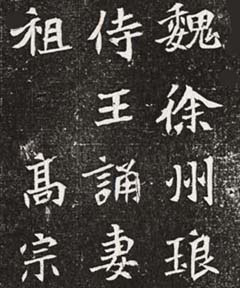 魏徐州琅
侍王誦妻
祖髙宗